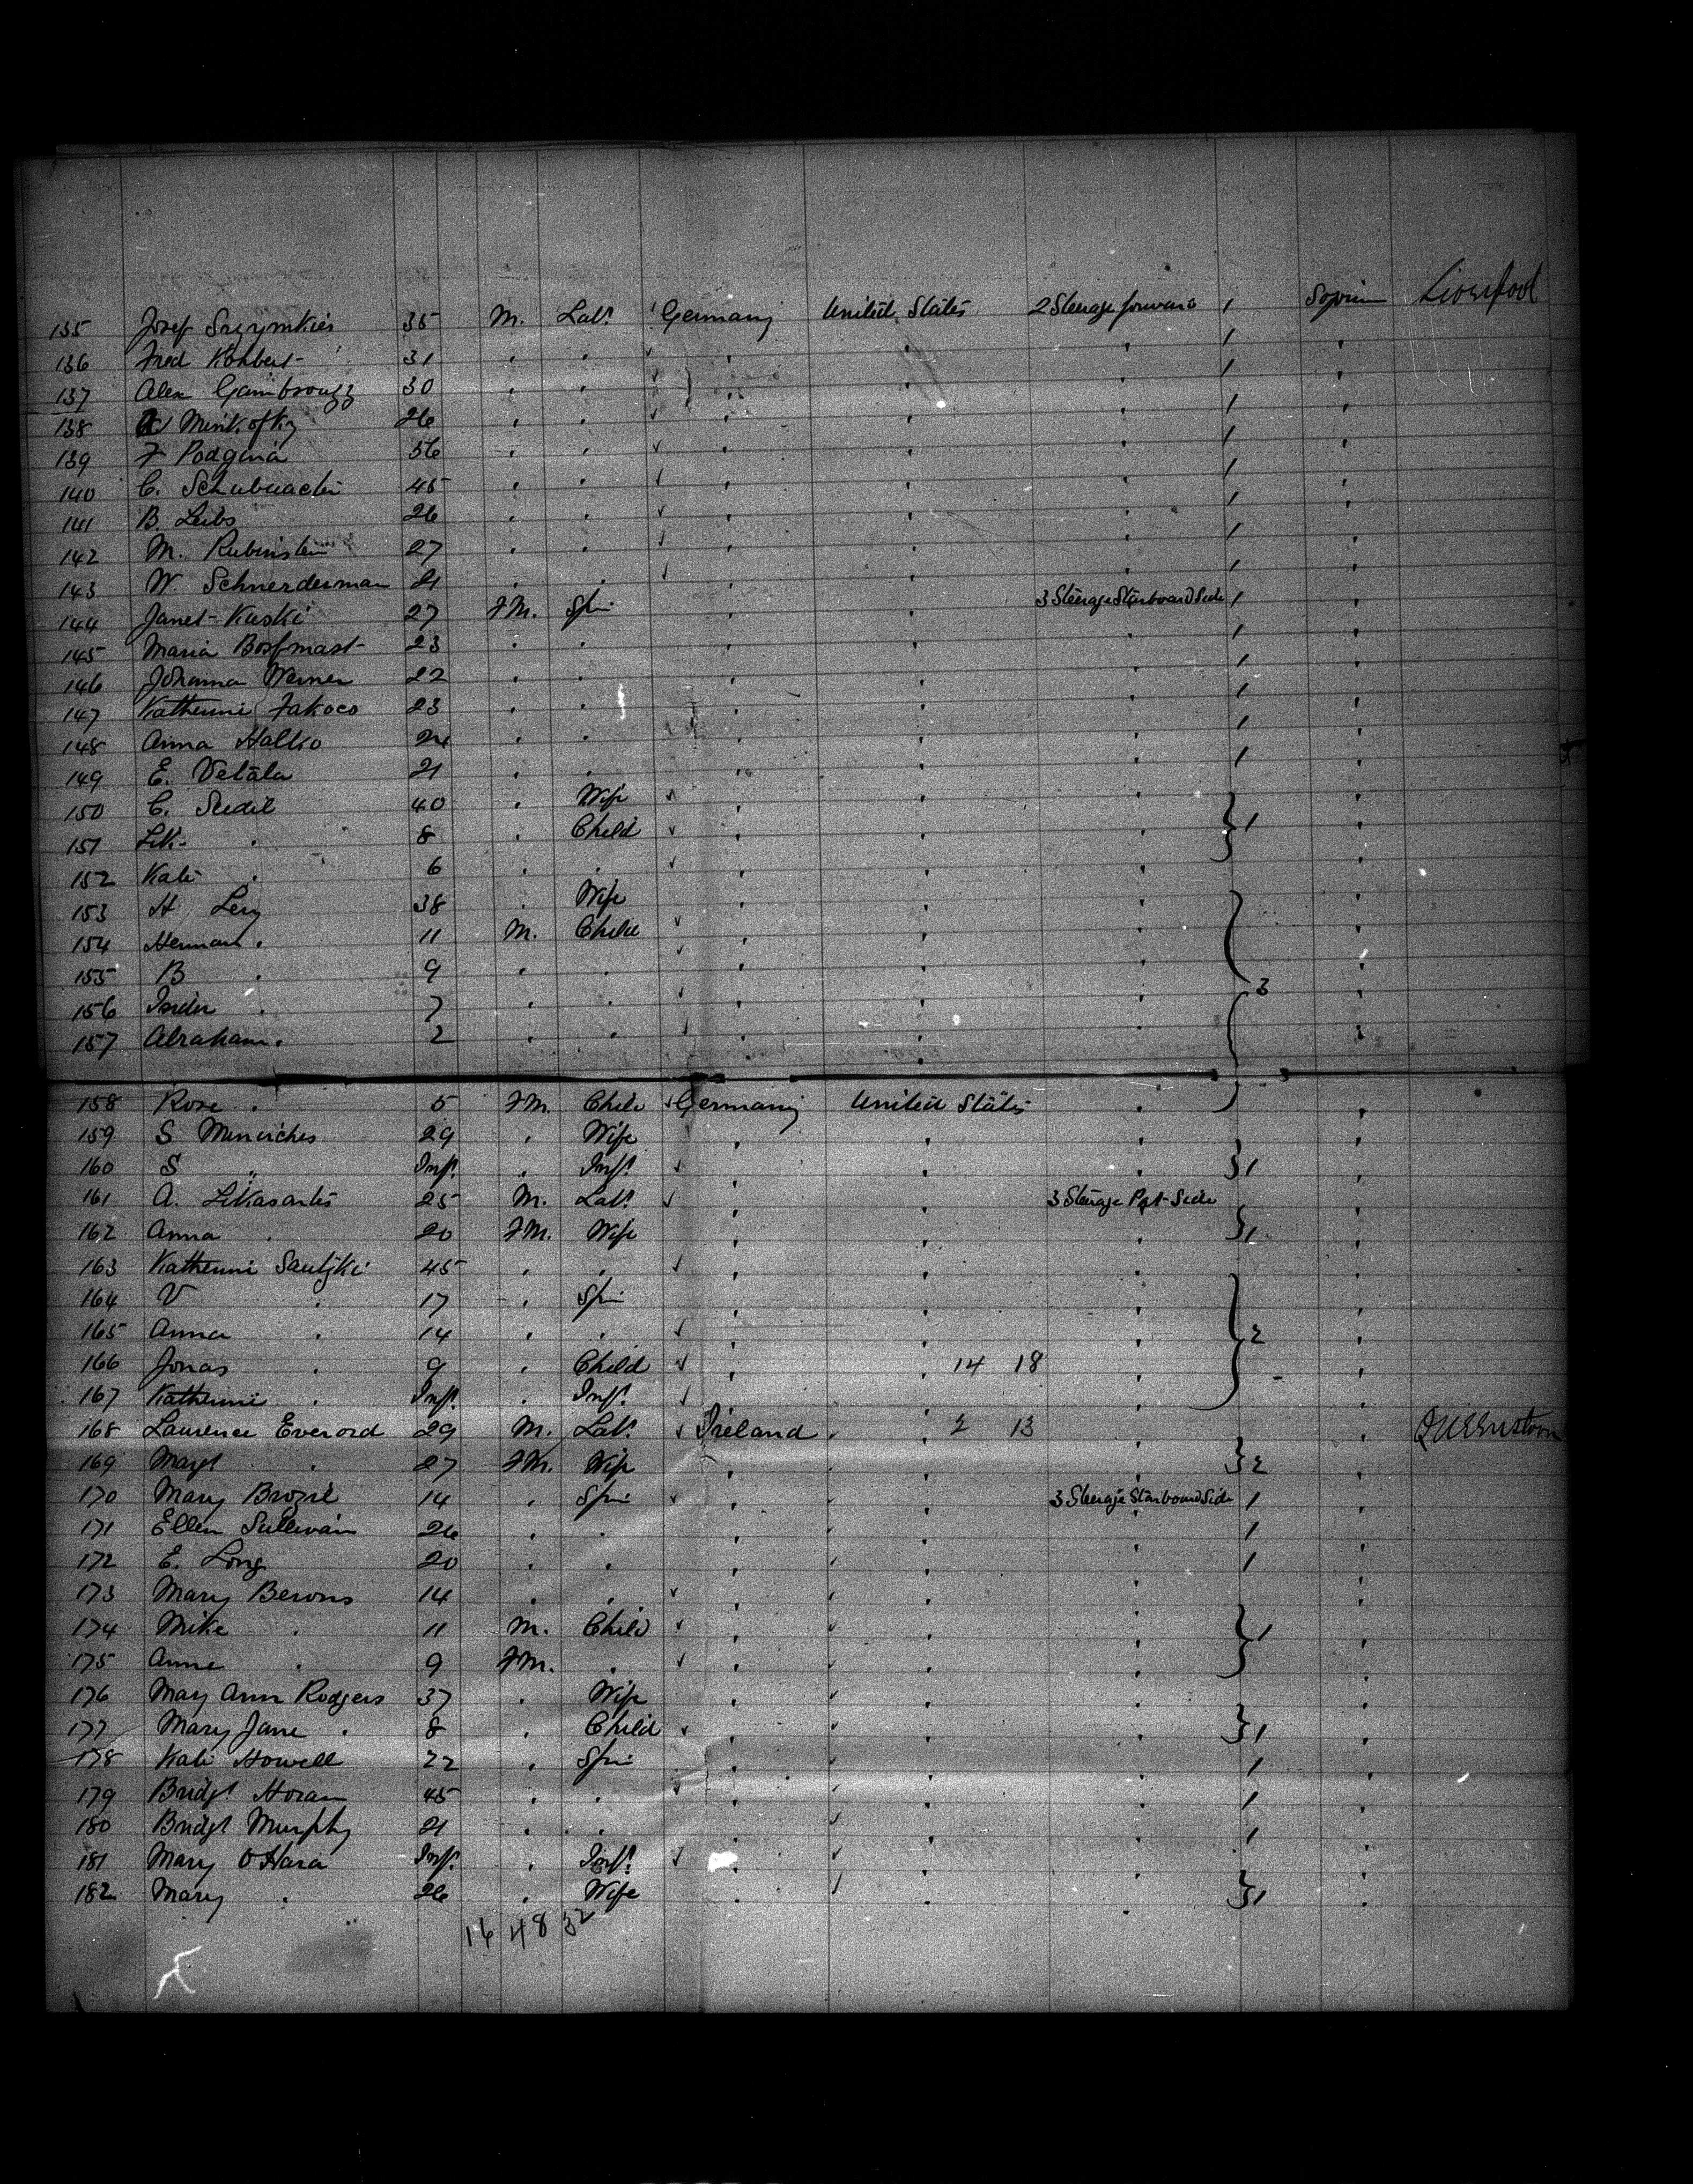 135 Josef Szrymkies 35 M. Labr Germany United States 2 Steerage forward 1 Sojourn Liverpool
136 Fred Kohbert 31 " " " " " 1 "
137 Alex 30 " " " " " 1 "
138 Minkofky 26 " " " " " 1 "
139 F Podgina 56 " " " " " 1 "
140 C. 45 " " " " " 1 "
141 B. Leibs 26 " " " " " 1 "
142 M. Rubinstein 27 " " " " " 1 "
143 W. Schnerderman 21 " " " " " 1 "
144 Janet Kuski 27 FM. Spin " " 3 Steerage Starboard Side 1 "
145 Maria 23 " " " " " 1 "
146 Johanna Werner 22 " " " " " 1 "
147 Katherine Fakoco 23 " " " " " 1 "
148 Anna Halko 24 " " " " " 1 "
149 E. Vetala 21 " " " " " 1 "
150 C. Seidil 40 " Wife " " "
151 " 8 " Child " " " } 1 "
152 Kate " 6 " " " " " "
153 H Levy 38 " Wife " " " "
154 Herman " 11 M. Child " " " "
155 B " 9 " " " " " "
156 " 7 " " " " " 3 "
157 Abraham " 2 " " " " " "
158 Rose " 5 FM. Child Germany United States " "
159 S 29 " Wife " " " "
160 S " Inft. " Inft. " " " } 1 "
161 A. 25 M. Labr " " 3 Steerage Port Side "
162 Anna " 20 FM. Wife " " " } 1 "
163 Katherine 45 " " " " " "
164 V " 17 " Spin " " " "
165 Anna " 14 " " " " " } 2 "
166 Jonas " 9 " Child " 14 18 " "
167 Katherine " Inft. " Inft. " " " "
168 Laurence Everord 29 M. Labr Ireland " 2 13 " " Queenstown
169 Margt " 27 FM. Wife " " " } 2 "
170 Mary 14 " Spin " " 3 Steerage Starboard Side 1 "
171 Ellen Sullivan 26 " " " " " 1 "
172 E. Long 20 " " " " " 1 "
173 Mary Berons 14 " " " " " "
174 Mike " 11 M. Child " " " } 1 "
175 Anne " 9 FM. " " " " "
176 Mary Ann Rodgers 37 " Wife " " " "
177 Mary Jane " 8 " Child " " " } 1 "
178 Kate Howell 22 " Spin " " " 1 "
179 Bridgt Horan 45 " " " " " 1 "
180 Bridgt Murphy 21 " " " " " 1 "
181 Mary O'Hara Inft. " Inft. " " " "
182 Mary " 26 " Wife " " " } 1 "
16 48 32